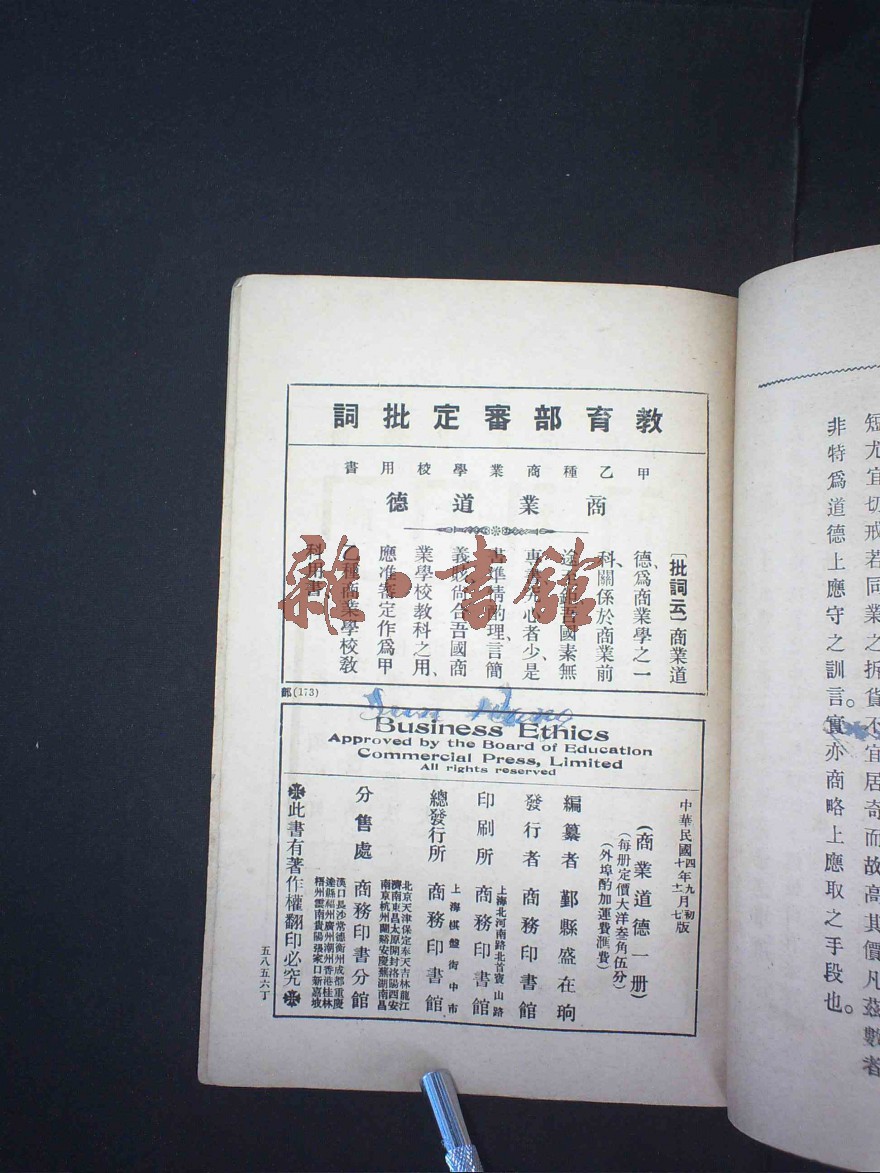 教育部審定批詞
甲乙種商業學校用書
商業道德
〔批詞云〕商業道
德、爲商業學之一
科、關係於商業前
途至鉅、吾國素無
專書、究心者少、是
書準情酌理、言簡
義賅、尙合吾國商
業學校教科之用、
應准審定作爲甲
乙種商業學校教
科用書
部(173)
Business Ethics
Approved by the Board of Education
Commercial Press, Limited
All rights reserved
中華民國
四年九月初版
(商業道德一册)
(每册定價大洋叁角伍分)
(外埠酌加運費滙費)
編纂者 鄞縣盛在珦
發行者 商務印書館
上海北河南路北首寶山路
印刷所 商務印書館
上海棋盤街中市
總發行所 商務印書館
北京天津保定奉天吉林龍江
濟南東昌太原開封洛陽西安
南京杭州蘭谿安慶蕪湖南昌
分售處 商務印書分館
漢口長沙常德衡州成都重慶
達縣福州廣州潮州香港桂林
梧州雲南貴陽張家口新嘉坡
此書有著作權翻印必究
五八五六丁
短尤宜切戒若同業之拆貨不宜居奇而故高其價凡茲數者
非特爲道德上應守之訓言。實亦商略上應取之手段也。
雜·書館